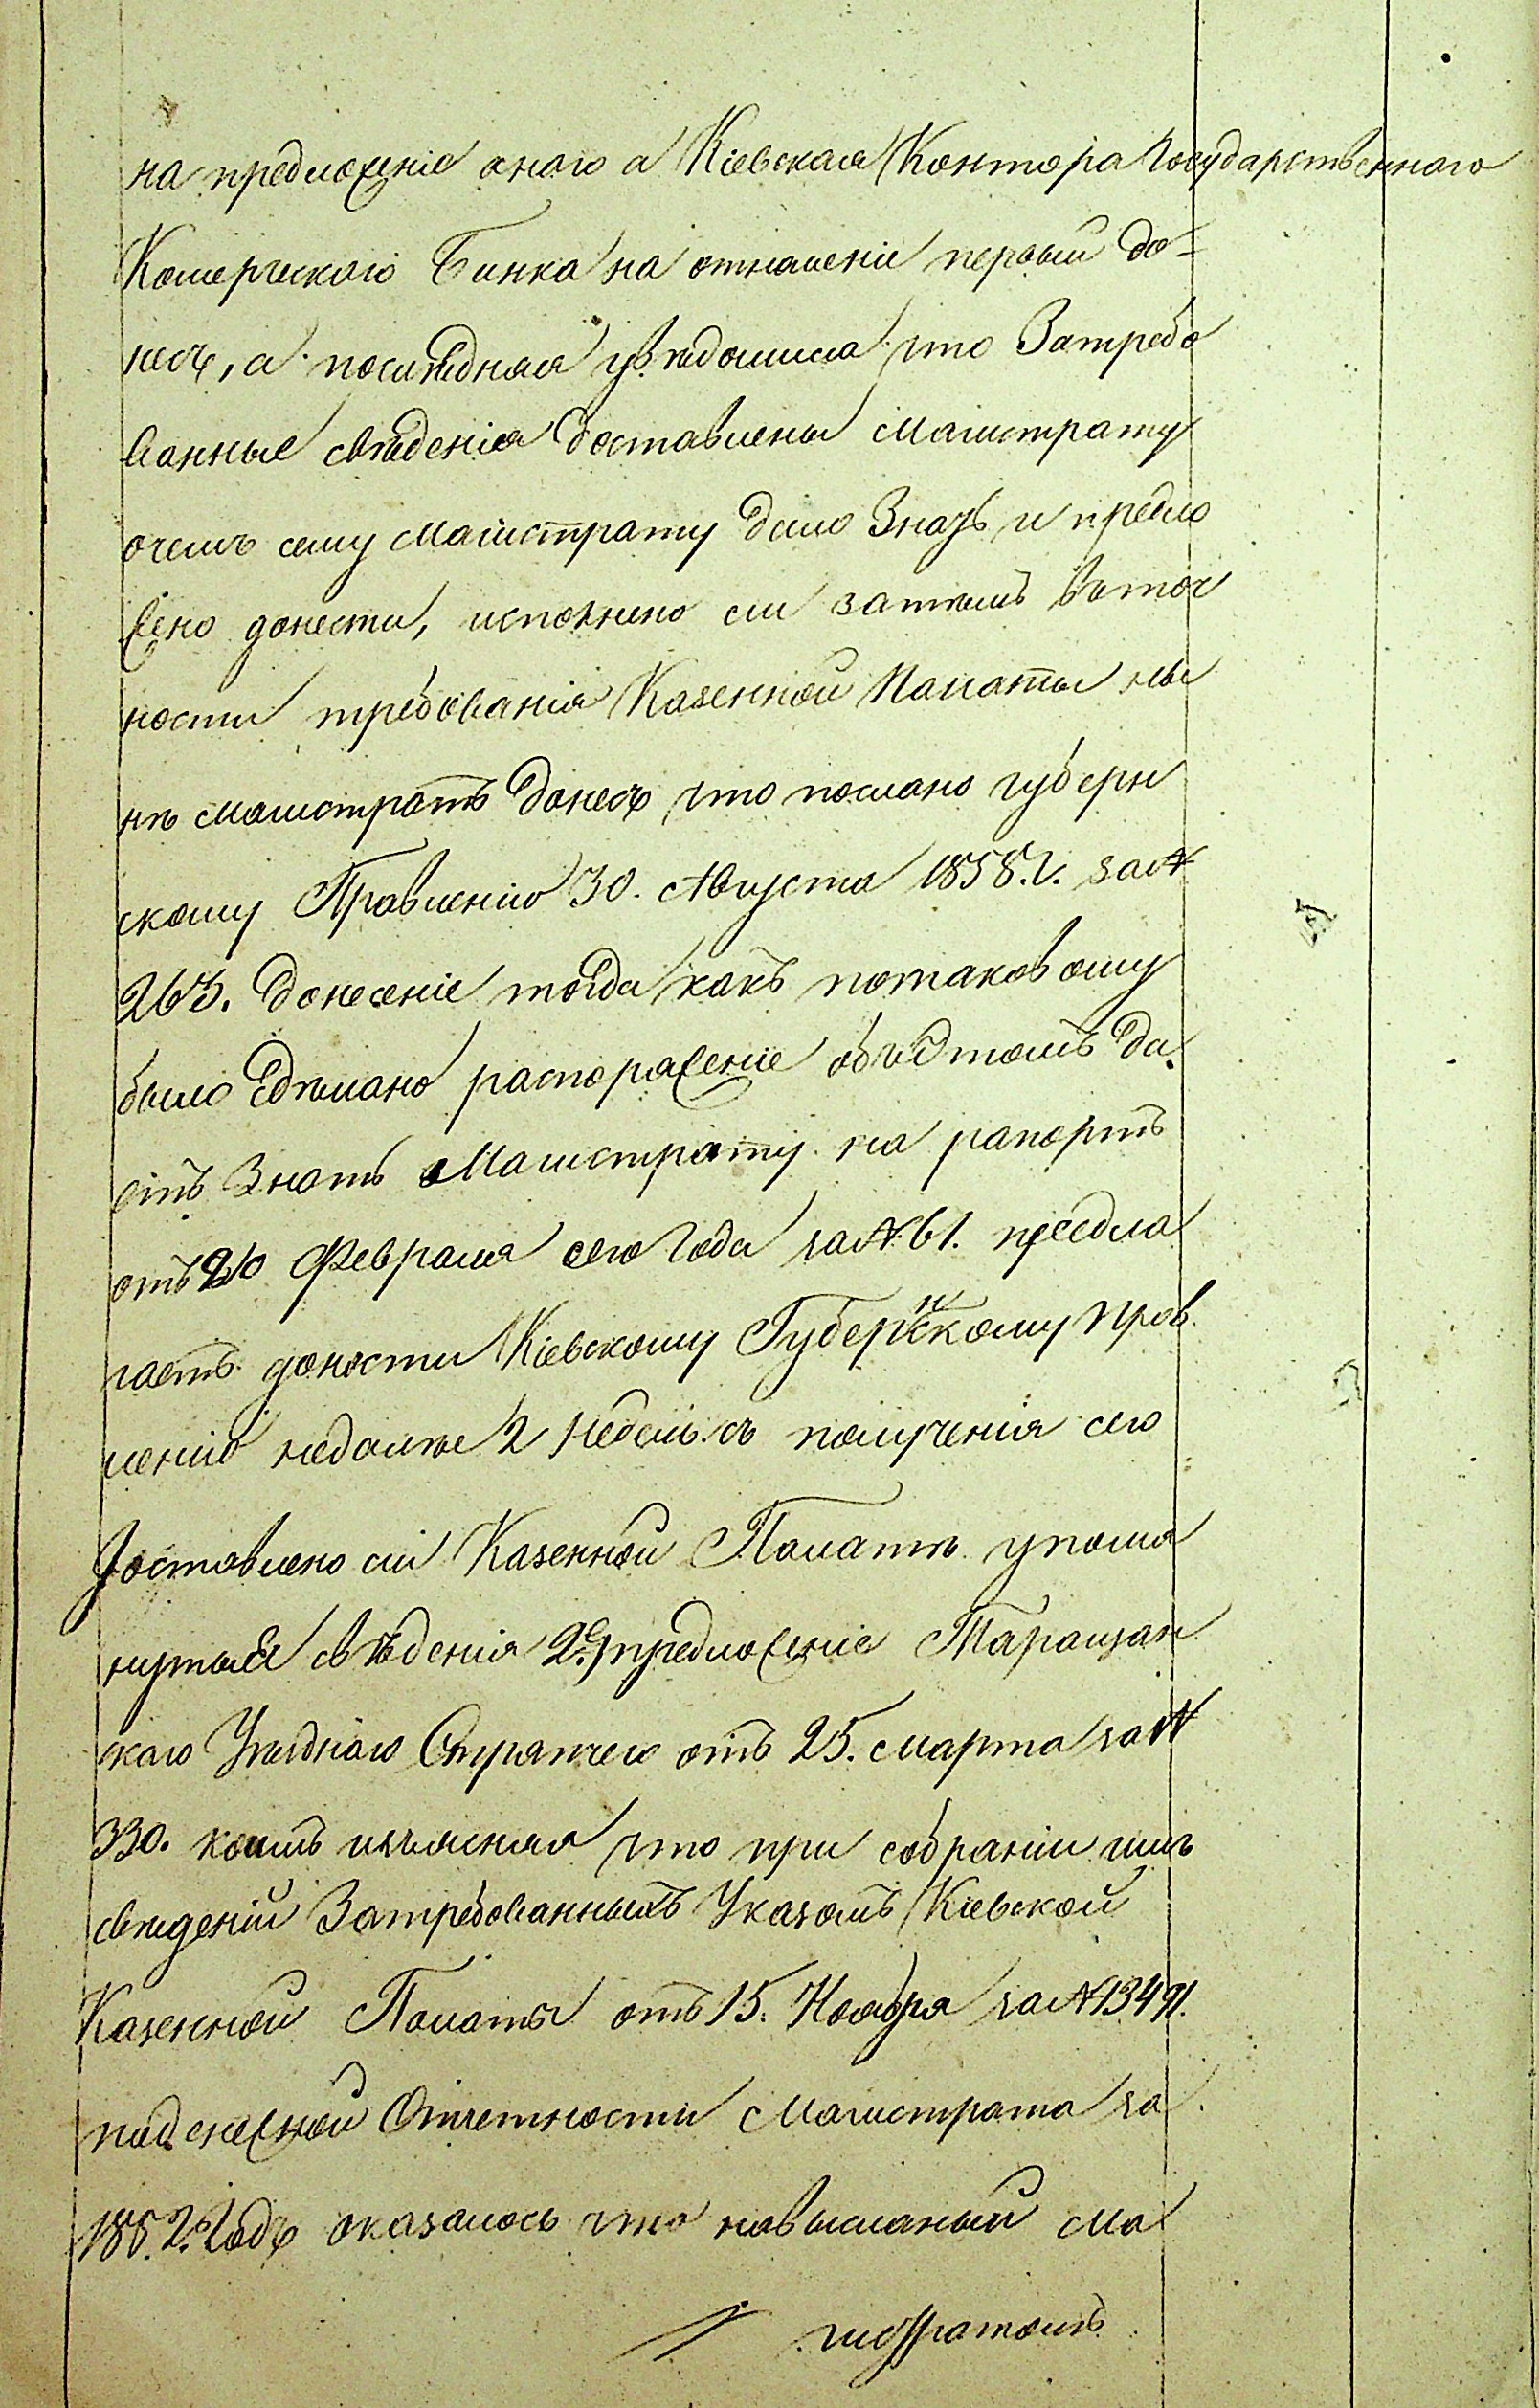 на предложеніе оного а Кіевская Контора Государственнаго
Комерческаго Банка на отношеніе первый до=
несъ, а последняя увѣдомила что Затребо
ванные свѣдения доставлены Магистрату
очемъ сему Магистрату дано Знать и предло
жено донести, исполнено ли затемъ вточ
ности требованія Казенной Палаты ны
нѣ Магистратъ донесъ что послано губерн
скому Правленію 30. Августа 1858. г. за №
263. донесеніе тогда какъ потаковому
было сделано распоряженіе объ этомъ да
етъ Знать Магистрату на рапортъ
отъ 20 Февраля сего года за № 61. предла
гаетъ донести Кіевскому Губернскому Прав
ленію недалѣе 2 недель съ полученія сего
доставлено ли Казенной Палатѣ упомя
нутыя свѣденія 2е) предложеніе Таращан
каго Уѣзднаго Стряпчего отъ 25. Марта за №
330. коимъ изъясняя что при собраніи имъ
свѣденій Затребованныхъ Указомъ Кіевской
Казенной Палаты отъ 15. Ноября за № 13491.
подснежной Отчетности Магистрата за
1852. Годъ оказалось что повысланый Ма
гистратомъ